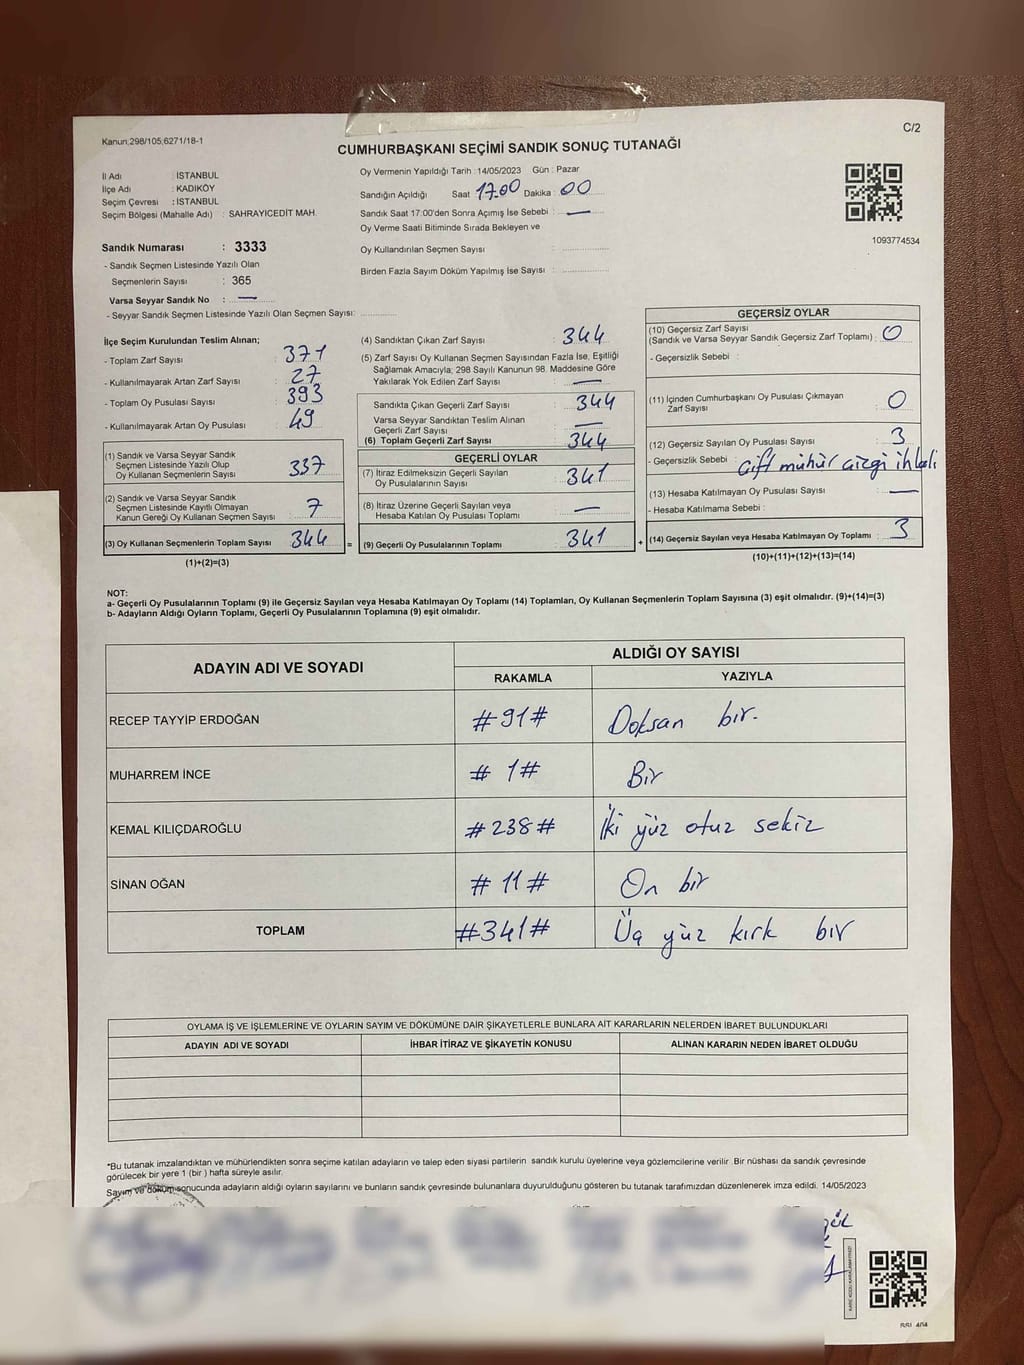 Kanun;298/105;6271/18-1
C/2
CUMHURBAŞKANI SEÇİMİ SANDIK SONUÇ TUTANAĞI
İl Adı : İSTANBUL
İlçe Adı : KADIKÖY
Seçim Çevresi : İSTANBUL
Seçim Bölgesi (Mahalle Adı) : SAHRAYICEDİT MAH.
Oy Vermenin Yapıldığı Tarih : 14/05/2023 Gün : Pazar
Sandığın Açıldığı Saat 17.00 Dakika : 00
Sandık Saat 17:00'den Sonra Açımış İse Sebebi : —
Oy Verme Saati Bitiminde Sırada Bekleyen ve
Oy Kullandırılan Seçmen Sayısı :
Birden Fazla Sayım Döküm Yapılmış İse Sayısı :
1093774534
Sandık Numarası : 3333
- Sandık Seçmen Listesinde Yazılı Olan
Seçmenlerin Sayısı : 365
Varsa Seyyar Sandık No : —
- Seyyar Sandık Seçmen Listesinde Yazılı Olan Seçmen Sayısı:
İlçe Seçim Kurulundan Teslim Alınan;
- Toplam Zarf Sayısı : 371
- Kullanılmayarak Artan Zarf Sayısı : 27
- Toplam Oy Pusulası Sayısı : 393
- Kullanılmayarak Artan Oy Pusulası : 49
(1) Sandık ve Varsa Seyyar Sandık
Seçmen Listesinde Yazılı Olup
Oy Kullanan Seçmenlerin Sayısı : 337
(2) Sandık ve Varsa Seyyar Sandık
Seçmen Listesinde Kayıtlı Olmayan
Kanun Gereği Oy Kullanan Seçmen Sayısı : 7
(3) Oy Kullanan Seçmenlerin Toplam Sayısı : 344 =
(1)+(2)=(3)
(4) Sandıktan Çıkan Zarf Sayısı : 344
(5) Zarf Sayısı Oy Kullanan Seçmen Sayısından Fazla İse, Eşitliği
Sağlamak Amacıyla; 298 Sayılı Kanunun 98. Maddesine Göre
Yakılarak Yok Edilen Zarf Sayısı : —
Sandıkta Çıkan Geçerli Zarf Sayısı : 344
Varsa Seyyar Sandıktan Teslim Alınan
Geçerli Zarf Sayısı : —
(6) Toplam Geçerli Zarf Sayısı : 344
GEÇERLİ OYLAR
(7) İtiraz Edilmeksizin Geçerli Sayılan
Oy Pusulalarının Sayısı : 341
(8) İtiraz Üzerine Geçerli Sayılan veya
Hesaba Katılan Oy Pusulası Toplamı : —
(9) Geçerli Oy Pusulalarının Toplamı : 341 +
GEÇERSİZ OYLAR
(10) Geçersiz Zarf Sayısı
(Sandık ve Varsa Seyyar Sandık Geçersiz Zarf Toplamı) : 0
- Geçersizlik Sebebi :
(11) İçinden Cumhurbaşkanı Oy Pusulası Çıkmayan
Zarf Sayısı : 0
(12) Geçersiz Sayılan Oy Pusulası Sayısı : 3
- Geçersizlik Sebebi : Çift mühür çizgi ihlali
(13) Hesaba Katılmayan Oy Pusulası Sayısı : —
- Hesaba Katılmama Sebebi :
(14) Geçersiz Sayılan veya Hesaba Katılmayan Oy Toplamı : 3
(10)+(11)+(12)+(13)=(14)
NOT:
a- Geçerli Oy Pusulalarının Toplamı (9) ile Geçersiz Sayılan veya Hesaba Katılmayan Oy Toplamı (14) Toplamları, Oy Kullanan Seçmenlerin Toplam Sayısına (3) eşit olmalıdır. (9)+(14)=(3)
b- Adayların Aldığı Oyların Toplamı, Geçerli Oy Pusulalarının Toplamına (9) eşit olmalıdır.
ADAYIN ADI VE SOYADI
ALDIĞI OY SAYISI
RAKAMLA YAZIYLA
RECEP TAYYİP ERDOĞAN #91# Doksan bir.
MUHARREM İNCE # 1# Bir
KEMAL KILIÇDAROĞLU #238# İki yüz otuz sekiz
SİNAN OĞAN # 11# On bir
TOPLAM #341# Üç yüz kırk bir
OYLAMA İŞ VE İŞLEMLERİNE VE OYLARIN SAYIM VE DÖKÜMÜNE DAİR ŞİKAYETLERLE BUNLARA AİT KARARLARIN NELERDEN İBARET BULUNDUKLARI
ADAYIN ADI VE SOYADI İHBAR İTİRAZ VE ŞİKAYETİN KONUSU ALINAN KARARIN NEDEN İBARET OLDUĞU
*Bu tutanak imzalandıktan ve mühürlendikten sonra seçime katılan adayların ve talep eden siyasi partilerin sandık kurulu üyelerine veya gözlemcilerine verilir. Bir nüshası da sandık çevresinde
görülecek bir yere 1 (bir ) hafta süreyle asılır.
Sayım ve döküm sonucunda adayların aldığı oyların sayılarını ve bunların sandık çevresinde bulunanlara duyurulduğunu gösteren bu tutanak tarafımızdan düzenlenerek imza edildi. 14/05/2023